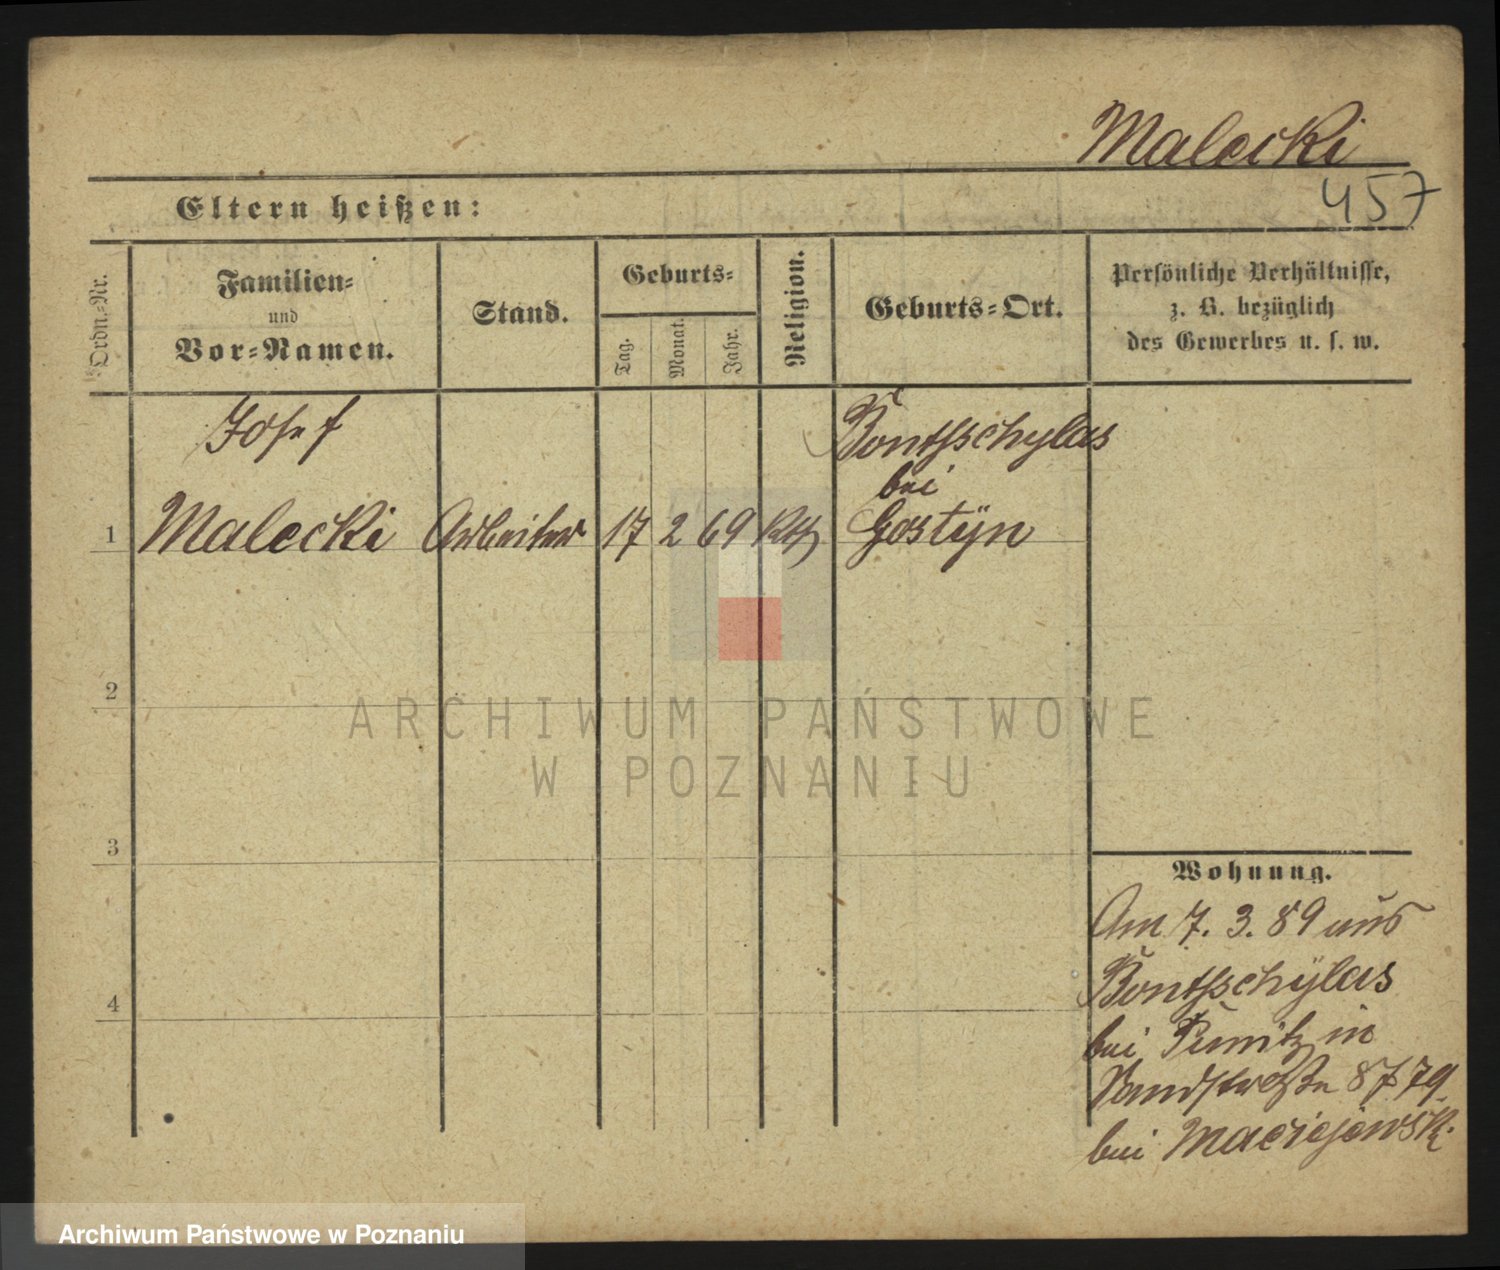 Malecki
457
Eltern heißen:
Ordn.-Nr.
Familien-
und
Vor-Namen.
Stand.
Geburts-
Tag.
Monat.
Jahr.
Religion.
Geburts-Ort.
Persönliche Verhältnisse,
z. B. bezüglich
des Gewerbes u. s. w.
Josef
Bonthschylas
bei
1 Malecki Arbeiter 17 2 69 Kth Gostÿn
2
ARCHIWUM PAŃSTWOWE
W POZNANIU
3
Wohnung.
Am 7. 3. 89 aus
Bonthschÿlas
4
bei Punitz in
Sandstraße 8 779
bei Maciejewsk.
Archiwum Państwowe w Poznaniu